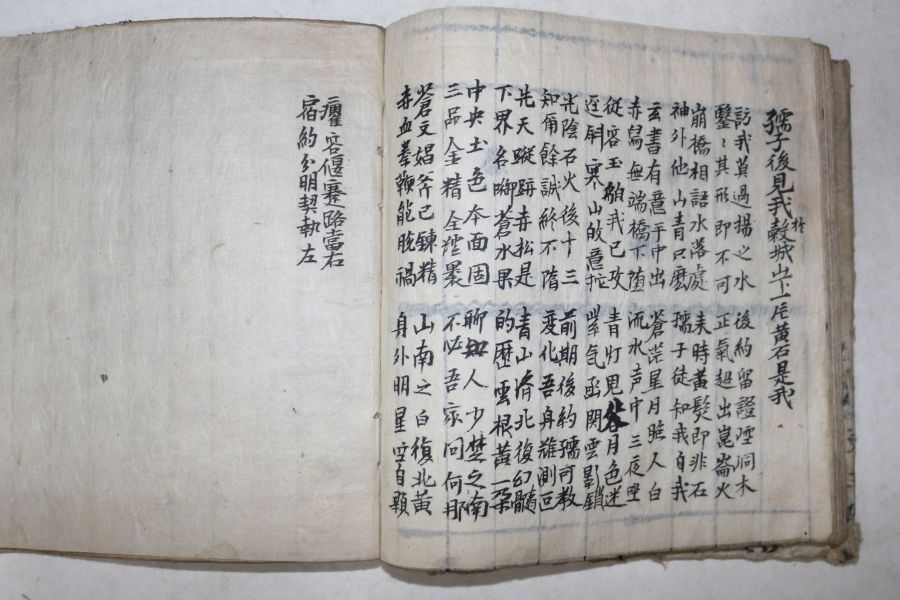 孺子後見我於穀城山下一片黃石是我
訪我莫過揚之水 後約留證堙洞木
鑿〻其形即不可 正氣超出崑崙火
崩橋相語水落處 来時黃髮即非石
神外他山青只麽 孺子徒知我自我
玄書有意平中出 蒼茫星月照人白
赤舄無端橋下堕 流水声中三夜坐
從容玉我已攻 青灯見月色迷
寒山皎意 紫气函関雲影鎖
光陰石火後十三 前期後約孺可教
知爾餘誠終不隋 变化吾身難測回
先天蹤跡赤松是 青山濟北復幻髓
下界名聊蒼水果 的歷雲根黃一朶
中央土色本面固 聊知人少楚之南
三品金精全裏 不必吾家问何那
蒼文斧已鍊精 山南之白復北黃
赤血拳鞭能脫禍 身外明星空自顆
癯容偃蹇路當右
宿約分明契執左